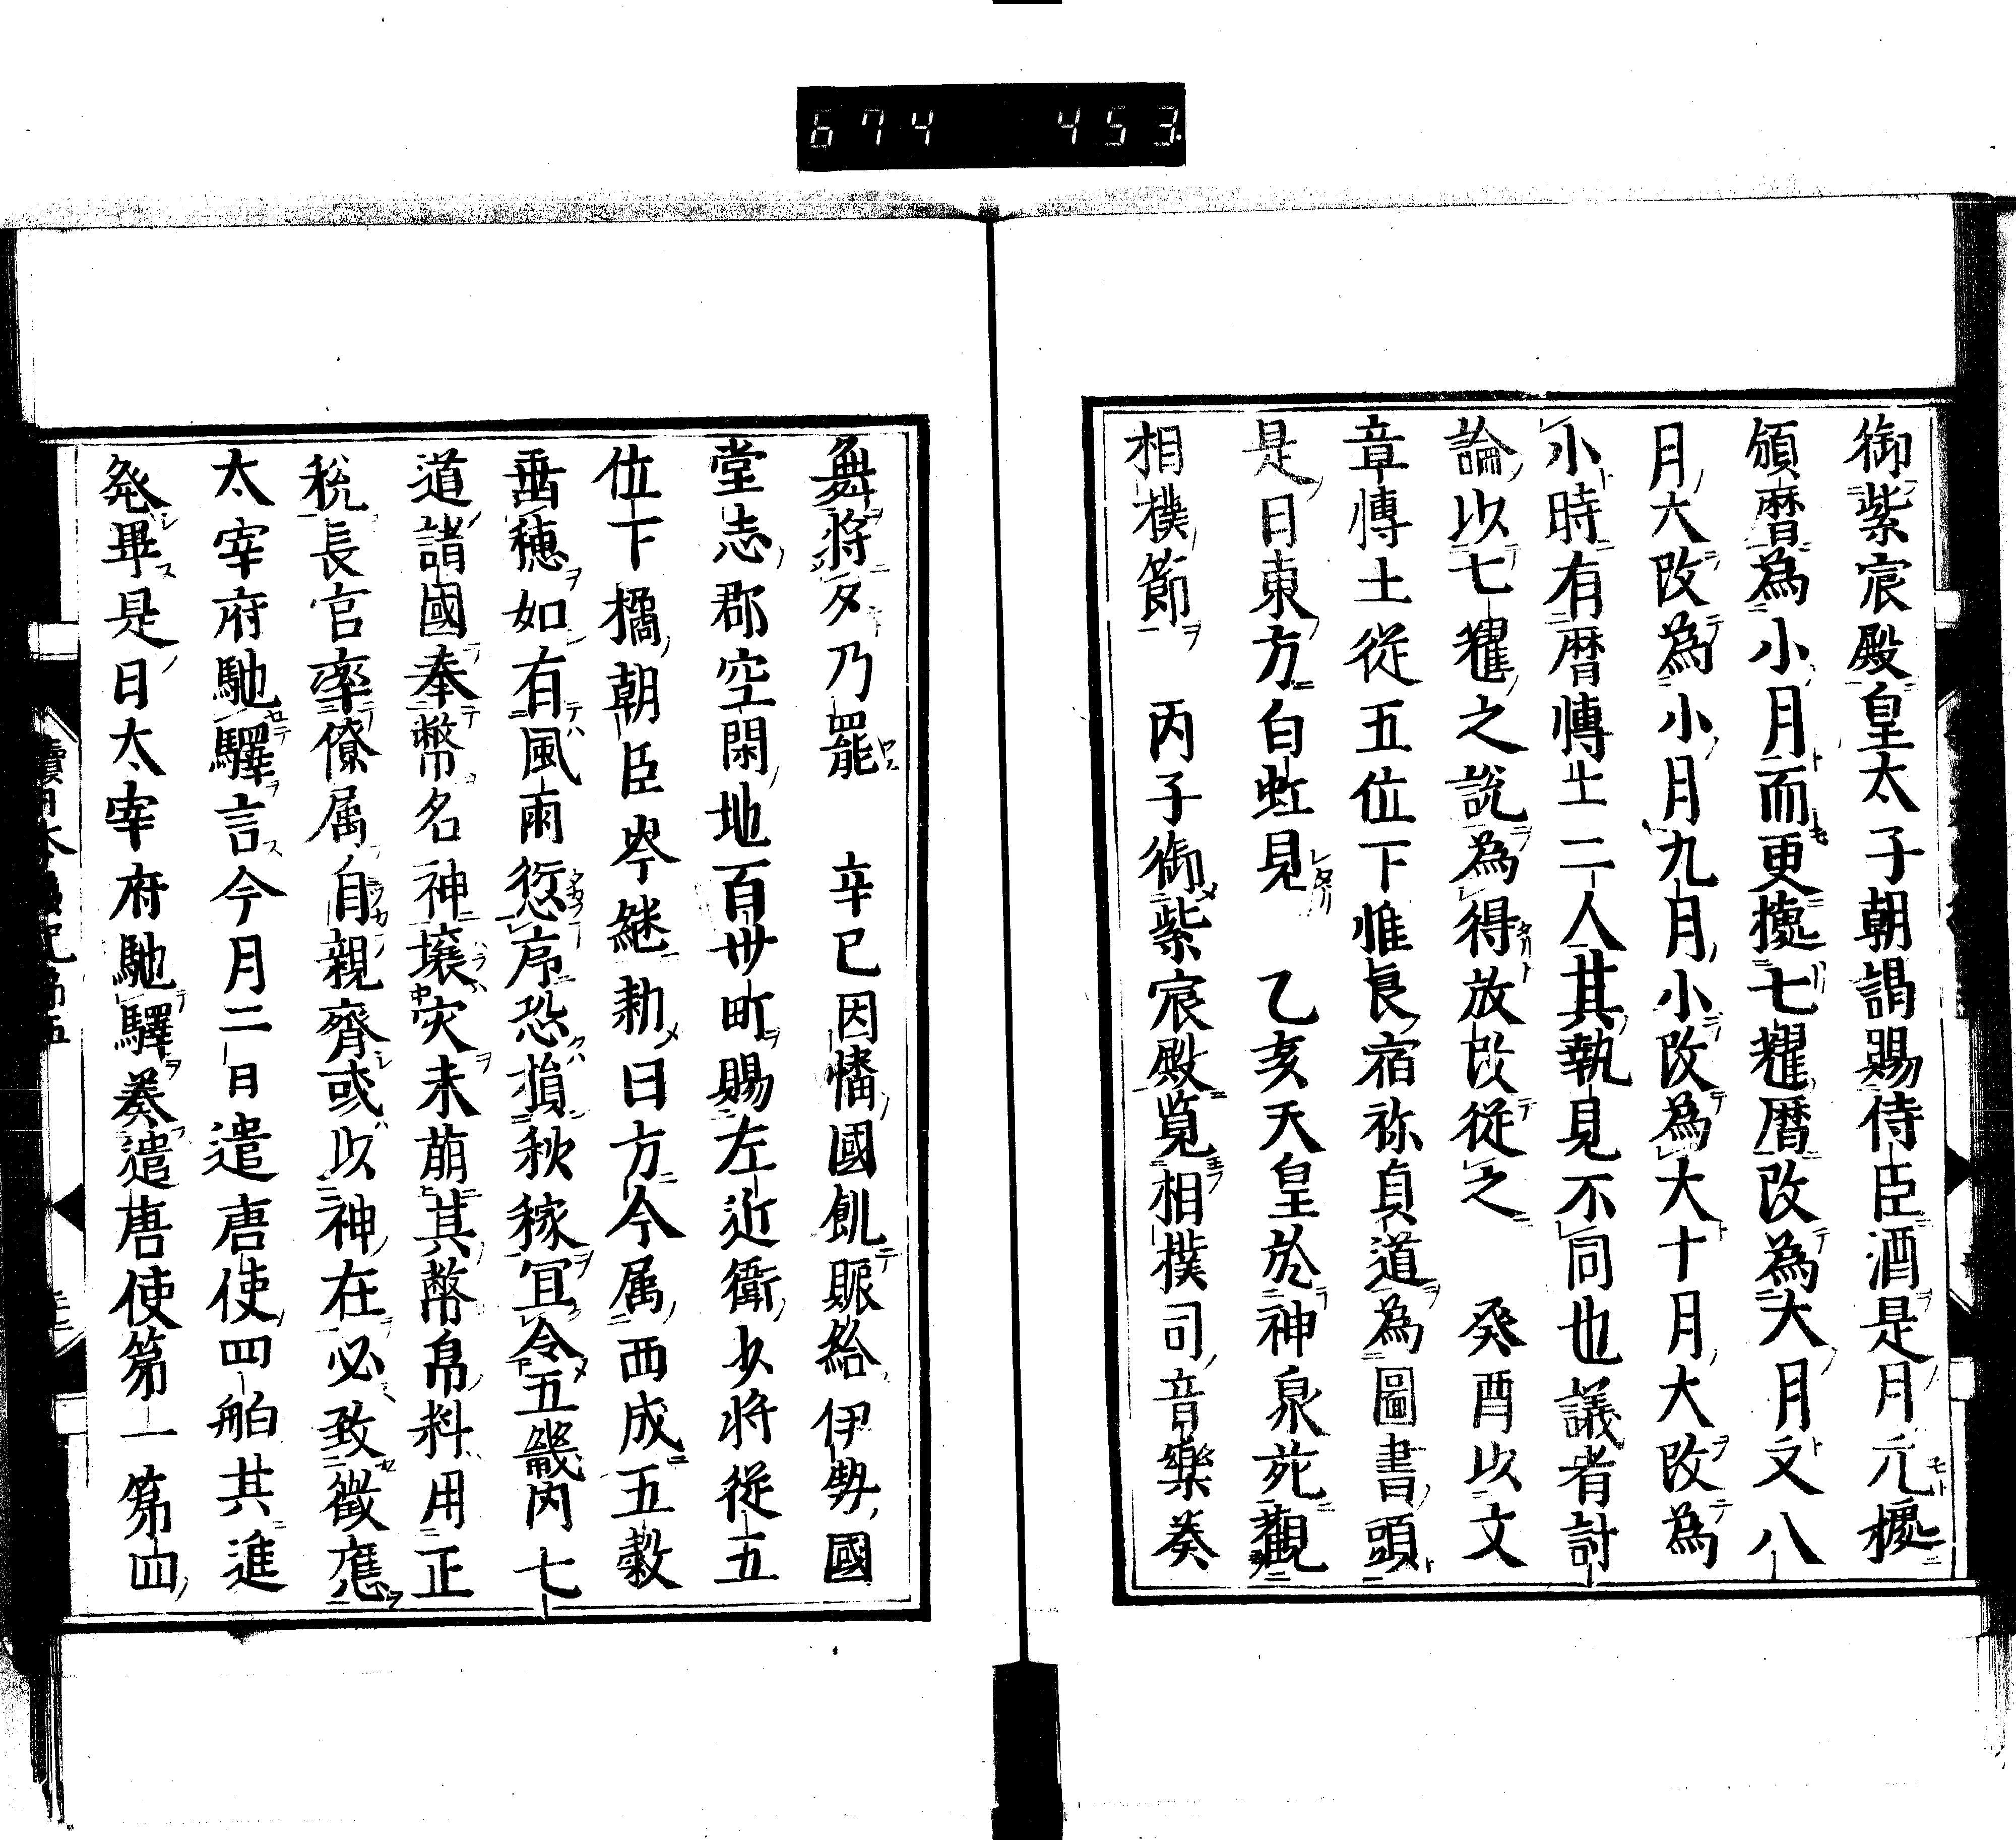 674 453
御紫宸殿皇太子朝謁賜侍臣酒是月元㯫
頒暦為小月而更㯫七耀暦改為大月文八
月大改為小月九月小改為大十月大改為
小時有暦博士二人其執見不同也議者討
論以七耀之説為得放改從之　癸酉以文
章博士從五位下惟良宿祢貞道為圖書頭
是日東方白虹見　乙亥天皇於神泉苑觀
相撲節　丙子御紫宸殿覧相撲司音樂奏
舞將夕乃罷　辛巳因幡國飢賑給伊勢國
堂志郡空閑地百卅町賜左近衛少將從五
位下橘朝臣岑継勅曰方今属西成五穀
垂穗如有風雨愆序恐損秋稼冝令五畿内七
道諸國奉幣名神壤灾未萠其幣帛料用正
税長官率僚属自親齊或以神在必致徵應
太宰府馳驛言今月二日遣唐使四舶共進
発畢是日太宰府馳驛奏遣唐使第一第四